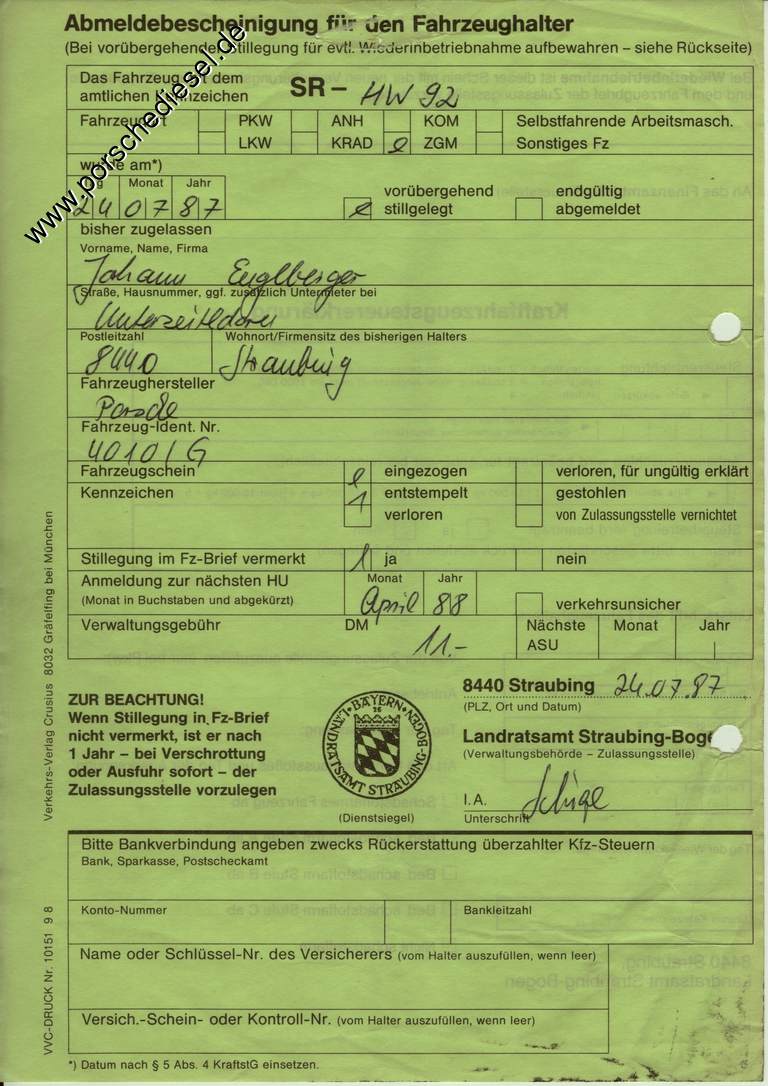 Abmeldebescheinigung für den Fahrzeughalter
(Bei vorübergehender Stillegung für evtl. Wiederinbetriebnahme aufbewahren – siehe Rückseite)
www.porschediesel.de
Das Fahrzeug mit dem
amtlichen Kennzeichen SR – HW 92
Fahrzeugart PKW ANH KOM Selbstfahrende Arbeitsmasch.
LKW KRAD ZGM Sonstiges Fz
wurde am*)
Tag Monat Jahr
24 07 87
vorübergehend stillgelegt
endgültig abgemeldet
bisher zugelassen
Vorname, Name, Firma
Johann Englberger
Straße, Hausnummer, ggf. zusätzlich Untermieter bei
Postleitzahl Wohnort/Firmensitz des bisherigen Halters
8440 Straubing
Fahrzeughersteller
Porsche
Fahrzeug-Ident. Nr.
4010/G
Fahrzeugschein eingezogen verloren, für ungültig erklärt
Kennzeichen 1 entstempelt gestohlen
verloren von Zulassungsstelle vernichtet
Stillegung im Fz-Brief vermerkt 1 ja nein
Anmeldung zur nächsten HU Monat Jahr
(Monat in Buchstaben und abgekürzt) April 88 verkehrsunsicher
Verwaltungsgebühr DM 11.- Nächste ASU Monat Jahr
ZUR BEACHTUNG!
Wenn Stillegung in Fz-Brief
nicht vermerkt, ist er nach
1 Jahr – bei Verschrottung
oder Ausfuhr sofort – der
Zulassungsstelle vorzulegen
BAYERN
26
LANDRATSAMT STRAUBING-BOGEN
(Dienstsiegel)
8440 Straubing 24.07.87
(PLZ, Ort und Datum)
Landratsamt Straubing-Boge
(Verwaltungsbehörde – Zulassungsstelle)
I.A.
Unterschrift
Bitte Bankverbindung angeben zwecks Rückerstattung überzahlter Kfz-Steuern
Bank, Sparkasse, Postscheckamt
Konto-Nummer Bankleitzahl
Name oder Schlüssel-Nr. des Versicherers (vom Halter auszufüllen, wenn leer)
Versich.-Schein- oder Kontroll-Nr. (vom Halter auszufüllen, wenn leer)
*) Datum nach § 5 Abs. 4 KraftstG einsetzen.
Verkehrs-Verlag Crusius 8032 Gräfelfing bei München
VVC-DRUCK Nr. 10151 9 8